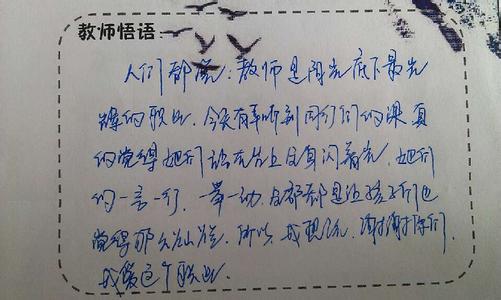 教师悟语:
人们都说:教师是阳光底下最光
辉的职业.今天有幸听到同行们的课真
的觉得她们站在台上且身闪着光,她们
的一言一行,一举一动,都是让孩子们也
觉得那么.所以,我,谢谢你们,
我爱这个职业.